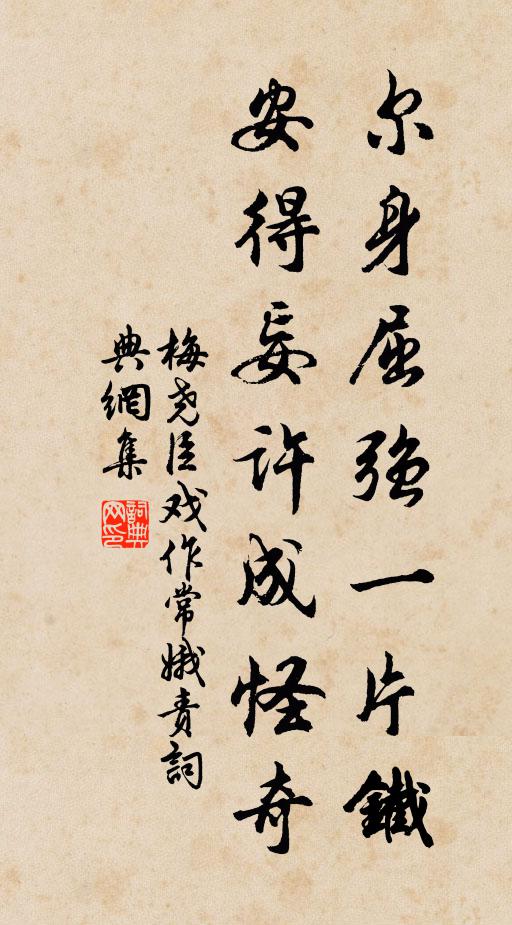 尔身屈强一片鐵
安得妄许成怪奇
梅尧臣戏作常娥责詞
典網集
詞典网印